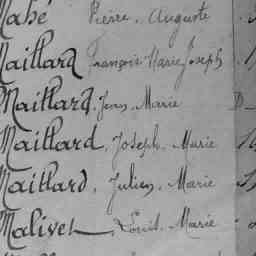 Mahé Pierre, Auguste
Maillard François Marie Joseph
Maillard, Jean, Marie D
Maillard, Joseph, Marie
Maillard, Julien, Marie
Malivet, Louis, Marie